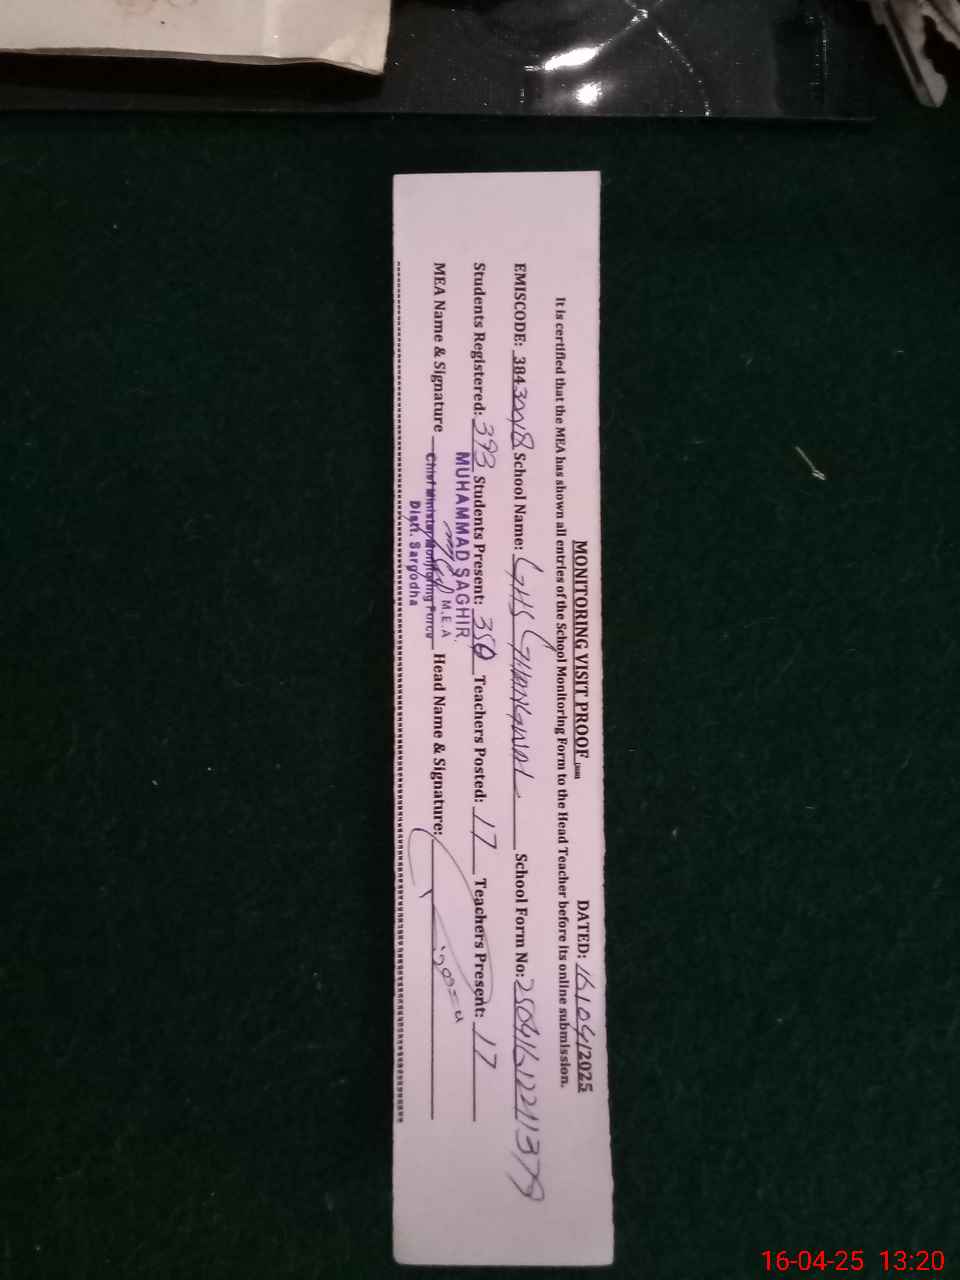 MONITORING VISIT PROOF DATED: 16/04/2025
It is certified that the MEA has shown all entries of the School Monitoring Form to the Head Teacher before its online submission.
EMISCODE: School Name: GHS School Form No:
Students Registered: 393 Students Present: 350 Teachers Posted: 17 Teachers Present: 17
MUHAMMAD SAGHIR
M.E.A
MEA Name & Signature Chief Minister Monitoring Force Head Name & Signature:
Distt. Sargodha
16-04-25 13:20